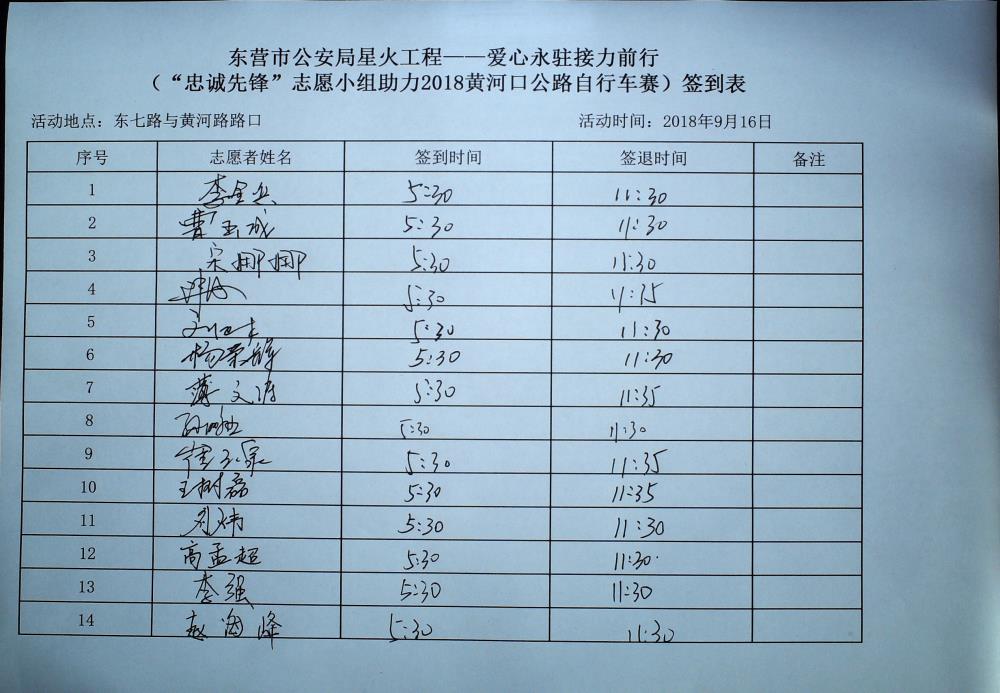 东营市公安局星火工程——爱心永驻接力前行
（“忠诚先锋”志愿小组助力2018黄河口公路自行车赛）签到表
活动地点：东七路与黄河路路口 活动时间：2018年9月16日
序号 志愿者姓名 签到时间 签退时间 备注
1 李金兵 5:30 11:30
2 曹玉成 5:30 11:30
3 宋娜娜 5:30 11:30
4 5:30 11:25
5 5:30 11:30
6 杨荣辉 5:30 11:30
7 薄文涛 5:30 11:35
8 5:30 11:30
9 5:30 11:35
10 王树磊 5:30 11:35
11 5:30 11:30
12 高孟超 5:30 11:30
13 李强 5:30 11:30
14 赵海峰 5:30 11:30